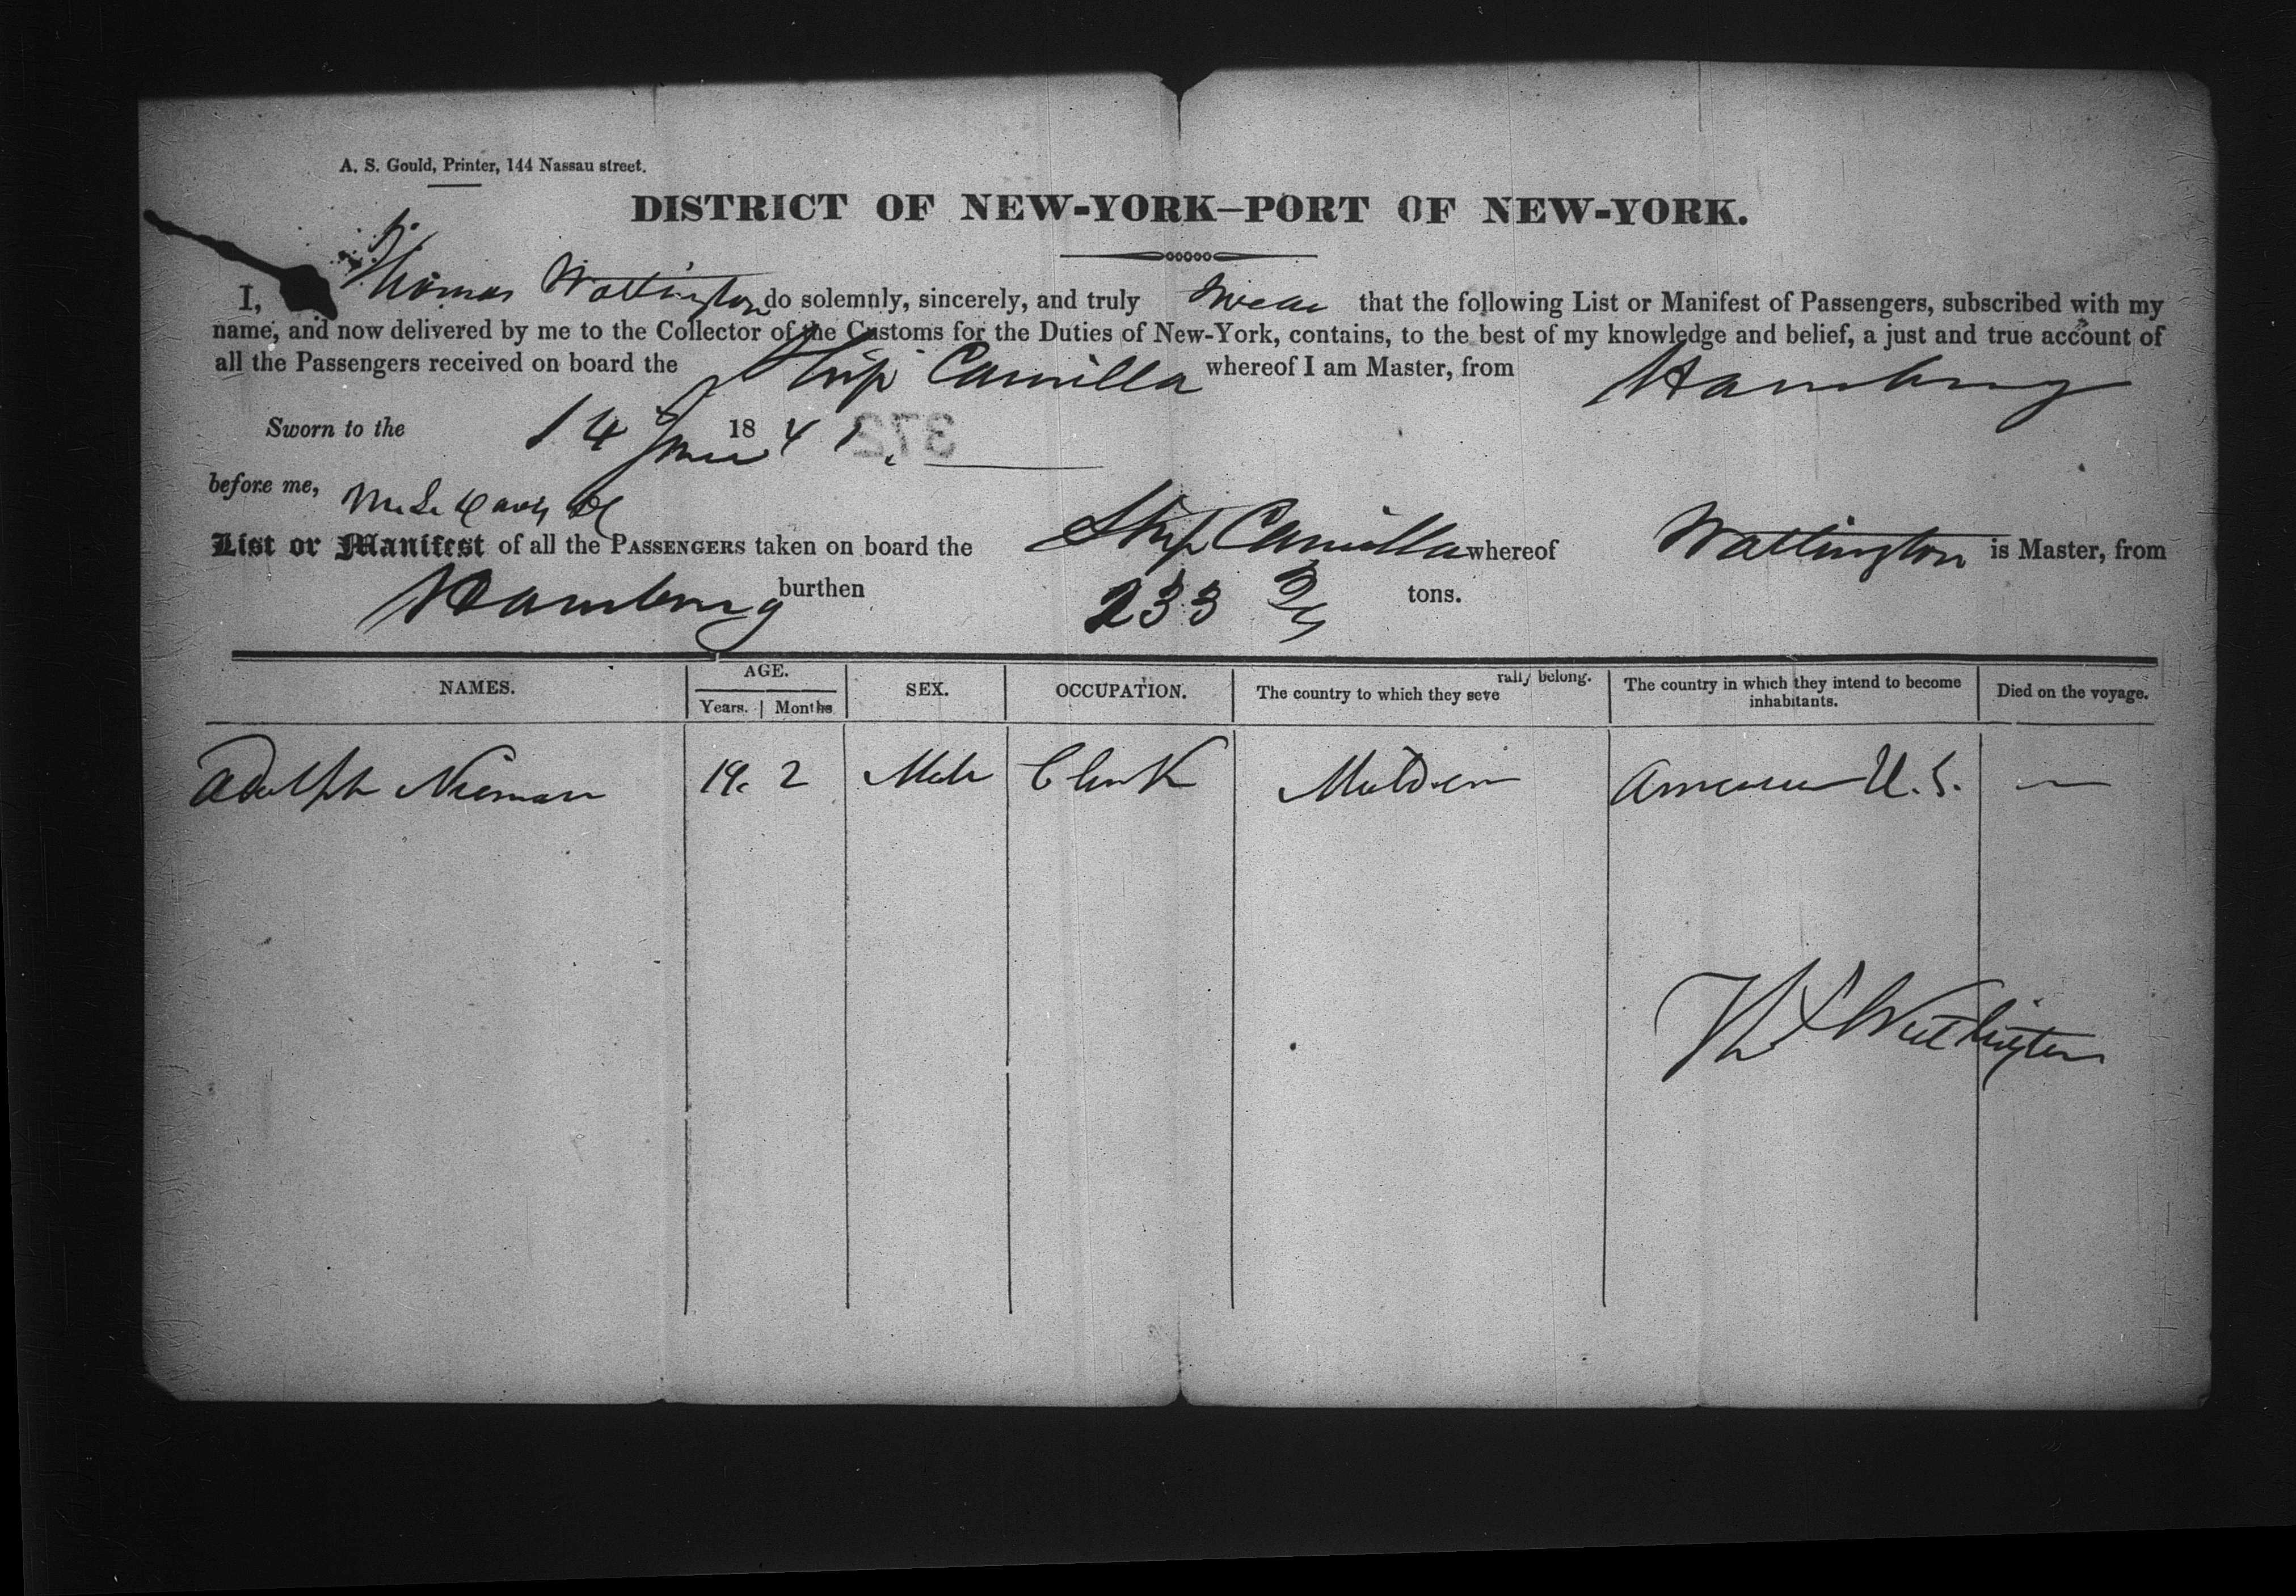 A. S. Gould, Printer, 144 Nassau street.
DISTRICT OF NEW-YORK—PORT OF NEW-YORK.
I, Thomas Watlington do solemnly, sincerely, and truly Swear that the following List or Manifest of Passengers, subscribed with my
name, and now delivered by me to the Collector of the Customs for the Duties of New-York, contains, to the best of my knowledge and belief, a just and true account of
all the Passengers received on board the Ship Camilla whereof I am Master, from Hamburg
Sworn to the 14 June 1841
372
before me,
List or Manifest of all the PASSENGERS taken on board the Ship Camilla whereof Watlington is Master, from
Hamburg burthen 233 tons.
NAMES. AGE. Years. Months SEX. OCCUPATION. The country to which they severally belong. The country in which they intend to become inhabitants. Died on the voyage.
Adolph Nieman 19. 2 Male Clerk America U.S. —
Watlington